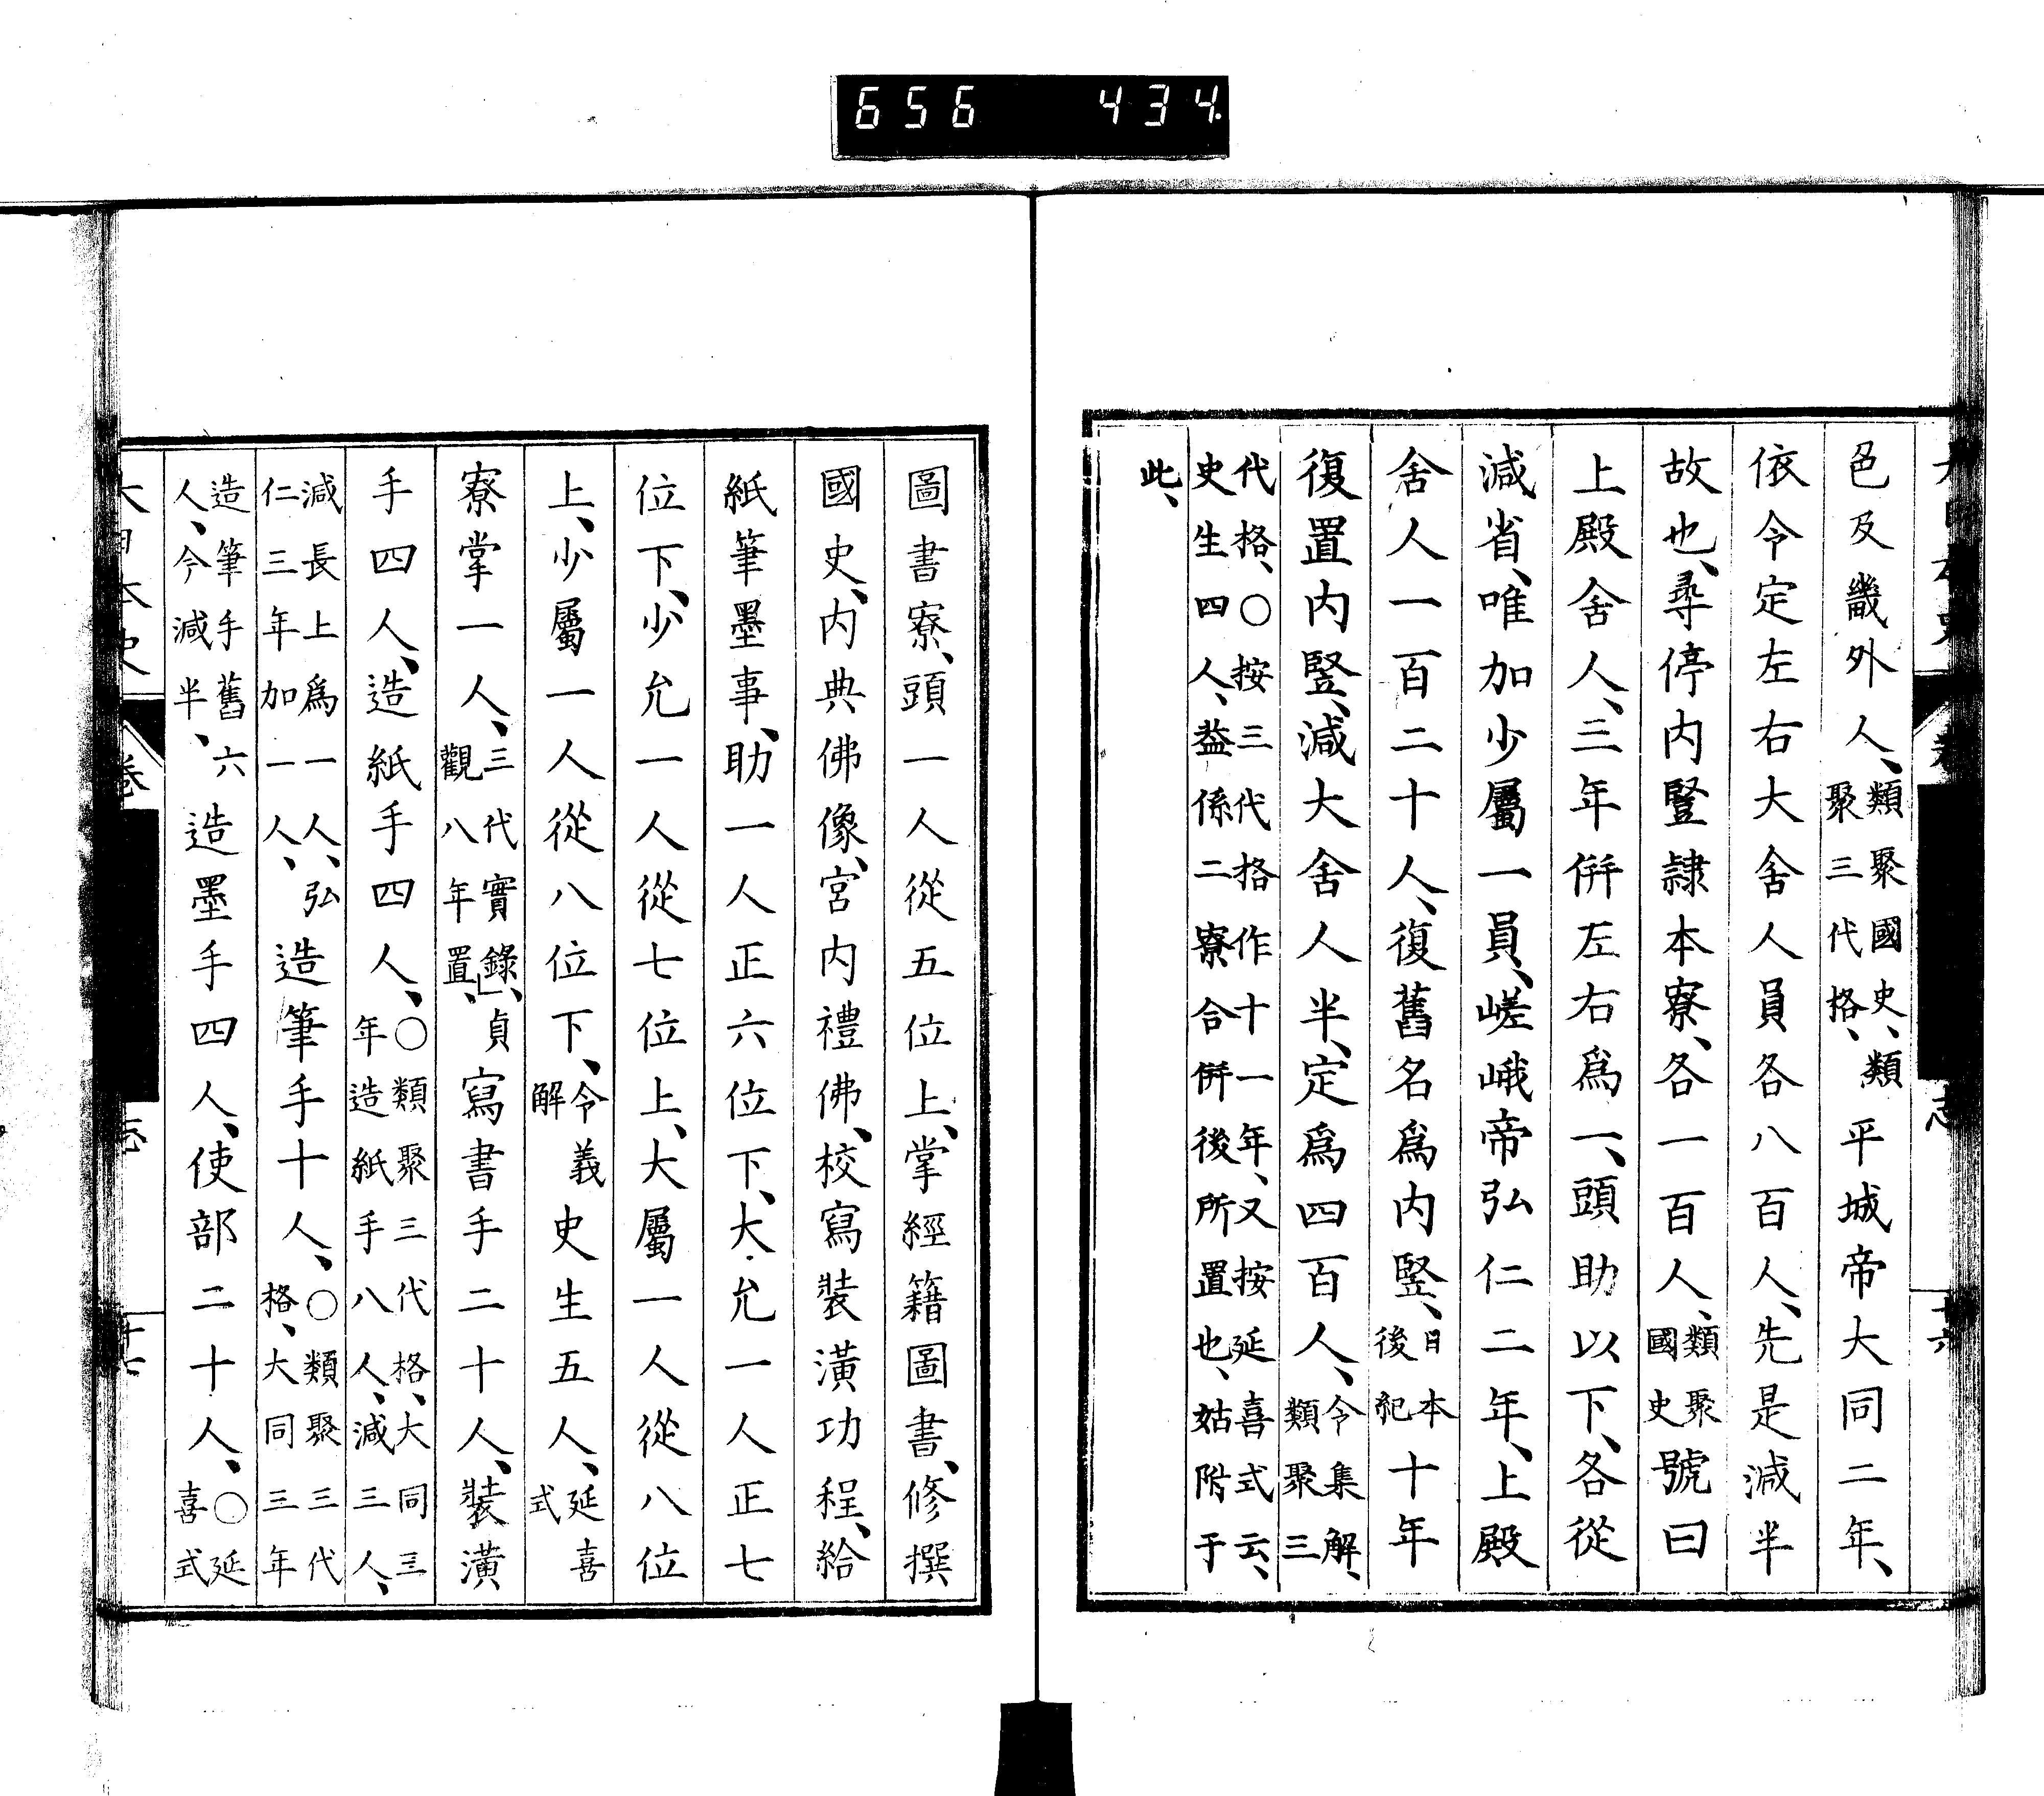 656 434
色及畿外人、類聚國史、類聚三代格、平城帝大同二年、
依令定左右大舍人員各八百人、先是減半
故也、尋停内豎隷本寮、各一百人、類聚國史號曰
上殿舍人、三年併左右爲一、頭助以下、各從
減省、唯加少屬一員、嵯峨帝弘仁二年、上殿
舍人一百二十人、復舊名爲内豎、日本後紀十年
復置内豎、減大舍人半、定爲四百人、令集解、類聚三
代格、○按三代格作十一年、又按延喜式云、
史生四人、益係二寮合併後所置也、姑附于
此、
圖書寮、頭一人從五位上、掌經籍圖書、修撰
國史、内典佛像、宮内禮佛、校寫裝潢功程、給
紙筆墨事、助一人正六位下、大允一人正七
位下、少允一人從七位上、大屬一人從八位
上、少屬一人從八位下、令義解史生五人、延喜式
寮掌一人、三代實錄、貞觀八年置、寫書手二十人、裝潢
手四人、造紙手四人、○類聚三代格、大同三年造紙手八人、減三人、
減長上爲一人、弘仁三年加一人、造筆手十人、○類聚三代格、大同三年
造筆手舊六人、今減半、造墨手四人、使部二十人、○延喜式
大日本史 卷 志